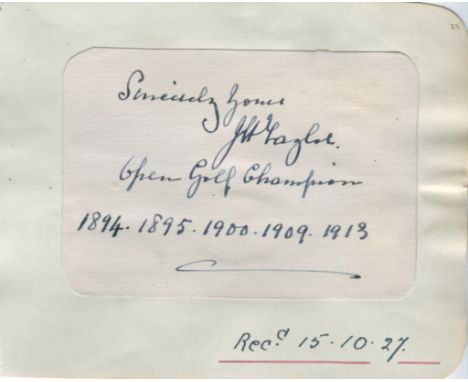 Sincerely Yours
JH Taylor.
Open Golf Champion
1894. 1895. 1900. 1909. 1913
Recd. 15.10.27.